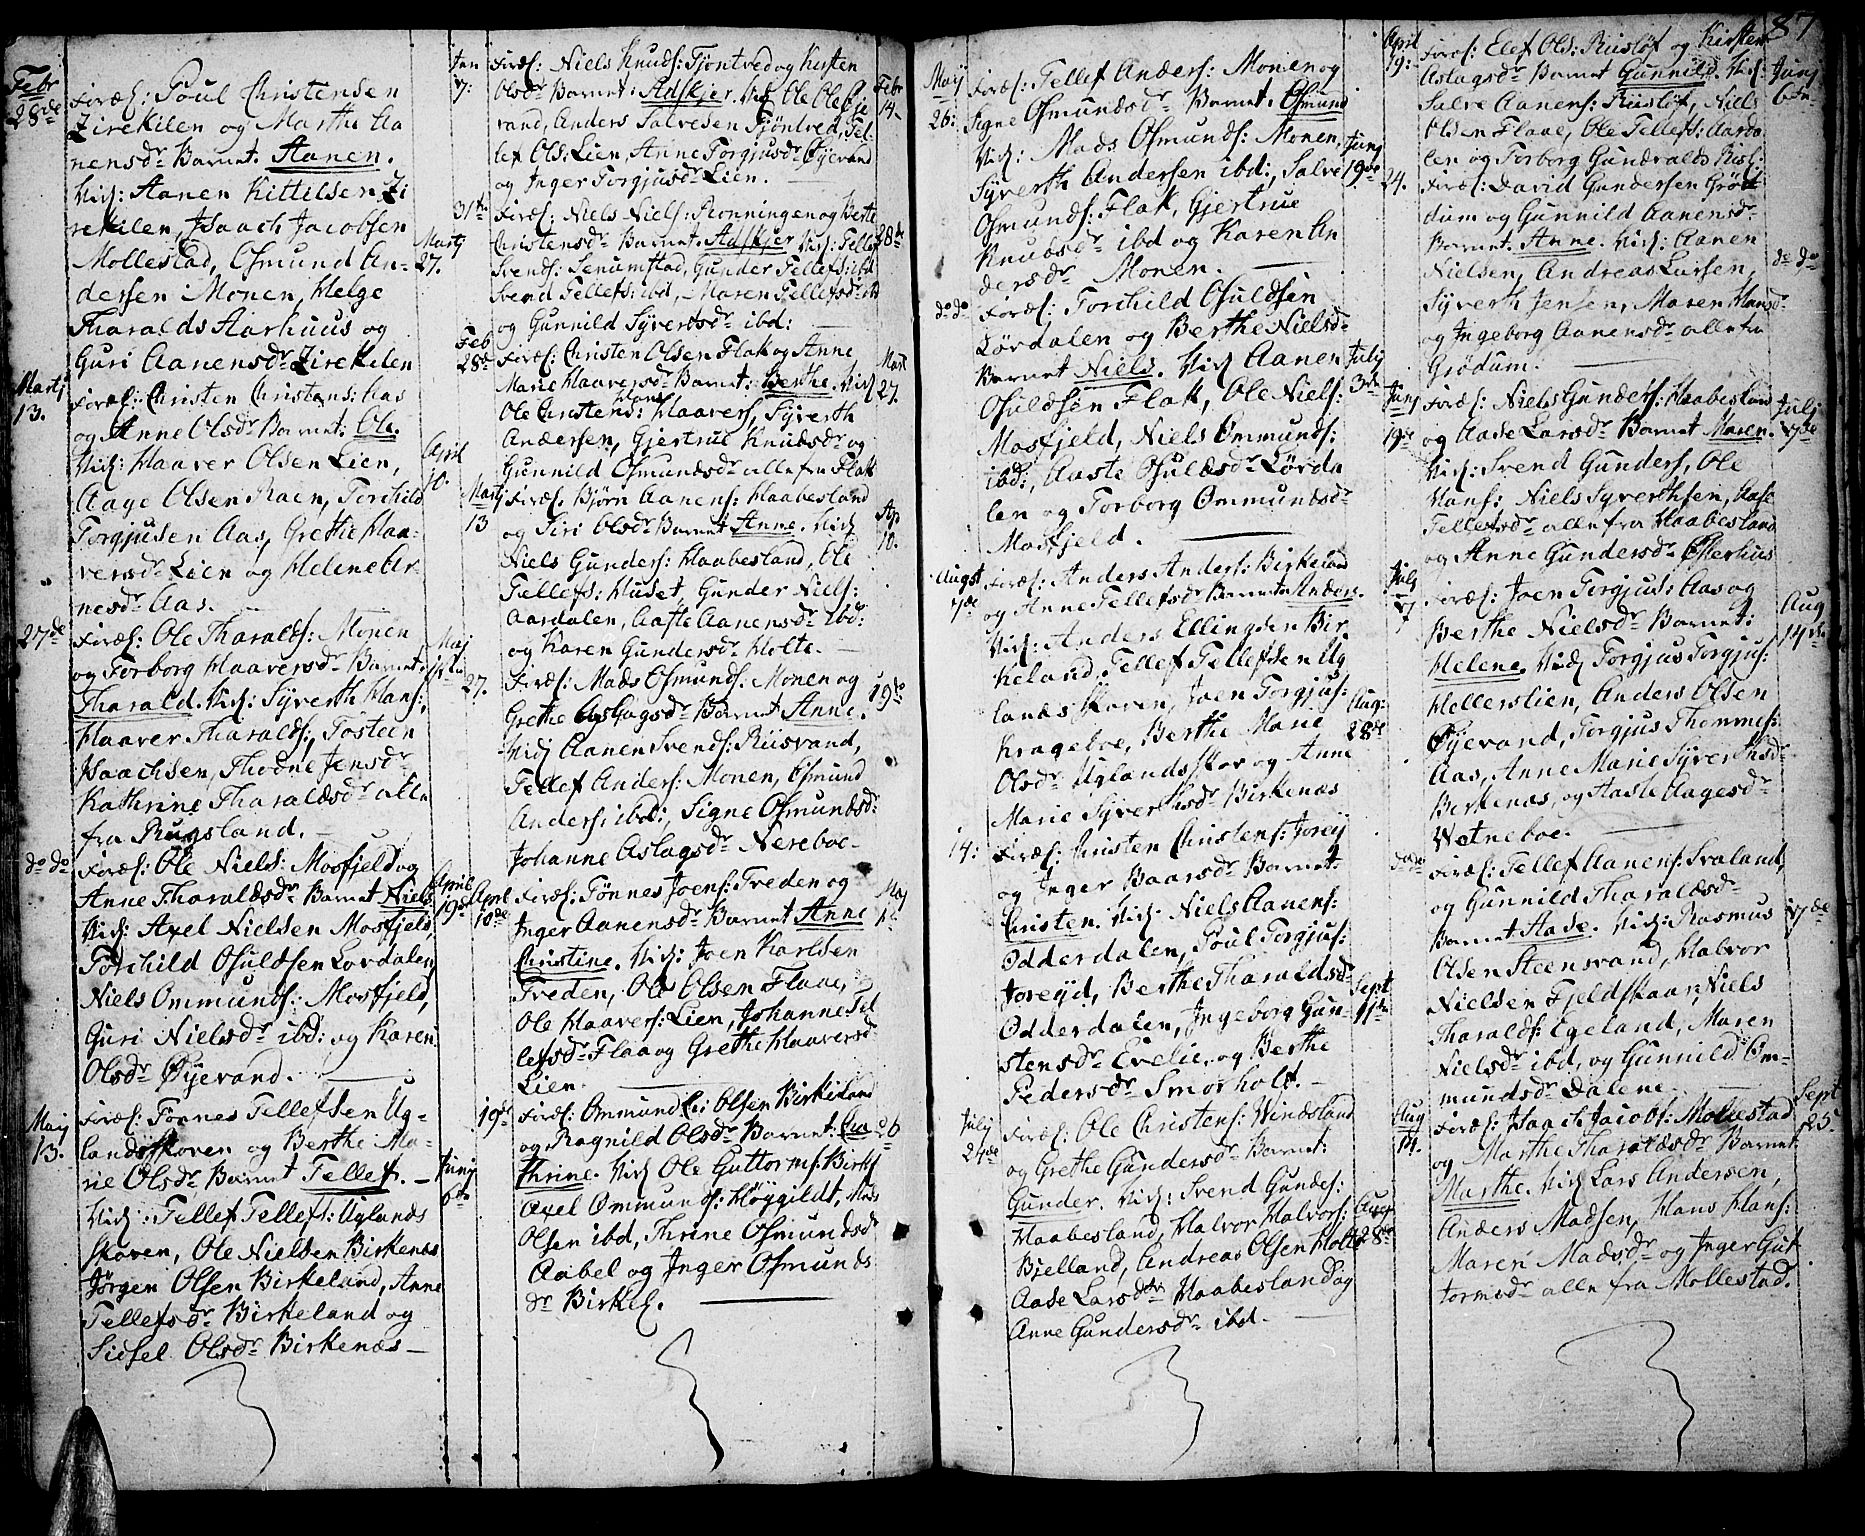 87
Febr
28de
Foræl: Poul Christensen
Zirekilen og Marthe Aa
nensdr Barnet. Aanen.
Vid: Aanen Kittilsen Zi
rekilen, Isaach Jacobsen
Mollestad, Osmund An-
dersen Monen, Helge
Tharalds Aarhuus og
Guri Aanensdr Zirekilen
Martj
27.
Martj
13.
Foræl: Christen Christens: Aas
og Anne Olsdr Barnet: Ole.
Vid: Haaver Olsen Lien,
Aage Olsen Raen, Torchild
Torgjusen Aas, Grethe Haa-
versdr Lien og Helene Ar-
nesdr Aas.
April
10.
27de
Foræl: Ole Tharalds: Monen
og Torborg Haaversdr Barnet:
Tharald. Vid: Syverth Hans:,
Haaver Tharalds:, Tosteen
Isaachsen, Thodne Jensdr
Kathrine Tharaldsdr alle
fra Rugsland.
Maj
do do
Foræl: Ole Niels: Mosfjeld og
Anne Tharaldsdr Barnet Niels
Vid: Axel Nielsen Mosfjeld,
Torchild Osuldsen Lordalen
Niels Ommunds: Mosfjeld,
Guri Nielsdr ibd: og Karen
Olsdr Øyevand.
April
19de
Maij
13.
Foræl: Tønnes Tellefsen Ug-
landsskoven og Berthe Ma-
rie Olsdr Barnet Tellef.
Vid: Tellef Tellefs: Uglands
skoven, Ole Nielsen Birkenæs
Jørgen Olsen Birkeland, Anne
Tellefsdr Birkeland og
Sidsel Olsdr Birkenæs
Junij
6te
Jan
7:
Foræl: Niels Knuds: Tjøntved og Kirsten
Olsdr Barnet: Adskjer. Vid Ole Ols Øje
vand, Anders Salvesen Tjøntved, Tel-
lef Ols: Lien, Anne Torgjusdr Øyevand
og Inger Torgjusdr Lien.
Febr
14.
31te
Foræl: Niels Niels: Rønningen og Berte
Christensdr Barnet. Adskjer Vid: Tellef
Svends: Senumstad, Gunder Tellefs: ibd
Svend Tellefs: ibd, Maren Tellefsdr ibd
og Gunnild Syvertsdr ibd:
28de
Feb
28de
Foræl: Christen Olsen Flak og Anne
Marie Haaversdr Barnet: Berthe. Vid
Ole Christens: Hans Haavers, Syverth
Andersen, Gjertrue Knudsdr og
Gunnild Osmundsdr alle fra Flak
Mart
27.
Martj
13
Foræl. Bjørn Aanens: Haabesland
og Siri Olsdr Barnet Anne. Vid
Niels Gunders: Haabesland, Ole
Tellefs: Huset, Gunder Niels:
Aardalen, Aaste Aanensdr ibd:
og Karen Gundersdr Holte.
Ap
10.
27.
Foræl: Mads Osmunds: Monen og
Grethe Aslagsdr Barnet Anne.
Vid Aanen Svends: Riisvand,
Tellef Anders: Monen, Osmund
Anders: ibd:, Signe Osmundsdr
Johanne Aslagsdr Nereboe.
19de
April
10de
Foræl: Tønnes Joens: Treden og
Inger Aanensdr Barnet Anne
Christine. Vid: Joen Karlsen
Treden, Ole Olsen Flaae,
Ole Haavers: Lien, Johanne Tel
lefsdr Flaa og Grethe Haaversdr
Lien.
Maj
1te
19de
Foræl: Ommund Olsen Birkeland
og Ragnild Olsdr Barnet:
thrine. Vid Ole Guttorms: Birkl
Axel Ommunds: Høygildt, Mads
Olsen ibd, Thrine Osmundsdr
Aabel og Inger Osmunds
dr Birkel.
26
Maij
26:
Foræl: Tellef Anders: Monen og
Signe Osmundsdr Barnet. Osmund
Vid: Mads Osmunds: Monen,
Syverth Andersen ibd:, Salve
Osmunds: Flak, Gjertrue
Knudsdr ibd og Karen An
dersdr Monen.
Junj
19de
do do
Foræl: Torchild Osuldsen
Lørdalen og Berthe Nielsdr
Barnet Niels. Vid Aanen
Osuldsen Flak, Ole Niels:
Mosfjeld, Niels Ommunds:
ibd:, Aaste Osuldsdr Lørda
len og Torborg Ommundsdr
Mosfjeld.
Julij
3de
Augst
7de
Foræl: Anders Anders: Birkeland
og Anne Tellefsdr Barnet Anders.
Vid: Anders Ellingsen Bir
keland, Tellef Tellefsen Ug
landsskoven, Joen Torgjus:
Krageboe, Berthe Marie
Olsdr Uglandsskov og Anne
Marie Syverthsdr Birkenæs
Aug:
28de
14:
Foræl: Christen Christens: Joreij
og Inger Baarsdr Barnet:
Christen. Vid: Niels Aanens:
Odderdalen, Poul Torgjus:
Joreijd, Berthe Tharaldsdr
Odderdalen, Ingeborg Gun-
stensdr Evelie og Berthe
Pedersdr Smorholt.
Sept
11te
Julij
24de
Foræl: Ole Christens: Vindsland
og Grethe Gundersdr Barnet:
Gunder. Vid: Svend Gunds:
Haabesland, Halvor Halvors:
Bjelland, Andreas Olsen Holte
Aase Larsdtr Haabesland og
Anne Gundersdr ibd.
Aug
28de
April
19:
Foræl: Elef Ols: Risløf og Kirsten
Aslagsdr Barnet Gunnild. Vid:
Salve Aanens: Riisløf, Niels
Olsen Flaae, Ole Tellefs: Aarda
len og Torborg Gundvalds
Junj
6te
24.
Foræl: David Gundersen Grød
dum og Gunnild Aanensdr
Barnet. Anne. Vid: Aanen
Nielsen, Andreas Larsen,
Syverth Jensen, Maren Hansdr
og Ingeborg Aanensdr alle fra
Grødum.
do do
Junj
19de
Foræl: Niels Gunders: Haabesland
og Aase Larsdr Barnet Maren.
Vid: Svend Gunders, Ole
Hans: Niels Syverthsen, Aase
Tellefsdr alle fra Haabesland
og Anne Gundersdr Østerhus
Julj
17de
Julj
7
Foræl: Joen Torgjus: Aas og
Berthe Nielsdr Barnet:
Helene. Vid Torgjus Torgjus:
Hellerslien, Anders Olsen
Øyevand, Torgjus Thommes:
Aas, Anne Marie Syverthsdr
Berkenæs, og Aaste Aagesdr
Vetneboe.
Aug
14de
do do
Foræl: Tellef Aanens: Svaland,
og Gunnild Tharaldsdr
Barnet Aase. Vid: Rasmus
Olsen Steensvand, Halvor
Nielsen Fjeldskaar, Niels
Tharalds: Egeland, Maren
Nielsdr ibd, og Gunnild Om-
mundsdr Dalene.
17de
Aug
14.
Foræl: Isaach Jacobs: Mollestad
og Marthe Tharaldsdr Barnet
Marthe. Vid Lars Andersen,
Anders Madsen, Hans Hans:
Maren Madsdr og Inger Gut
tormsdr alle fra Mollestad.
Sept
25.